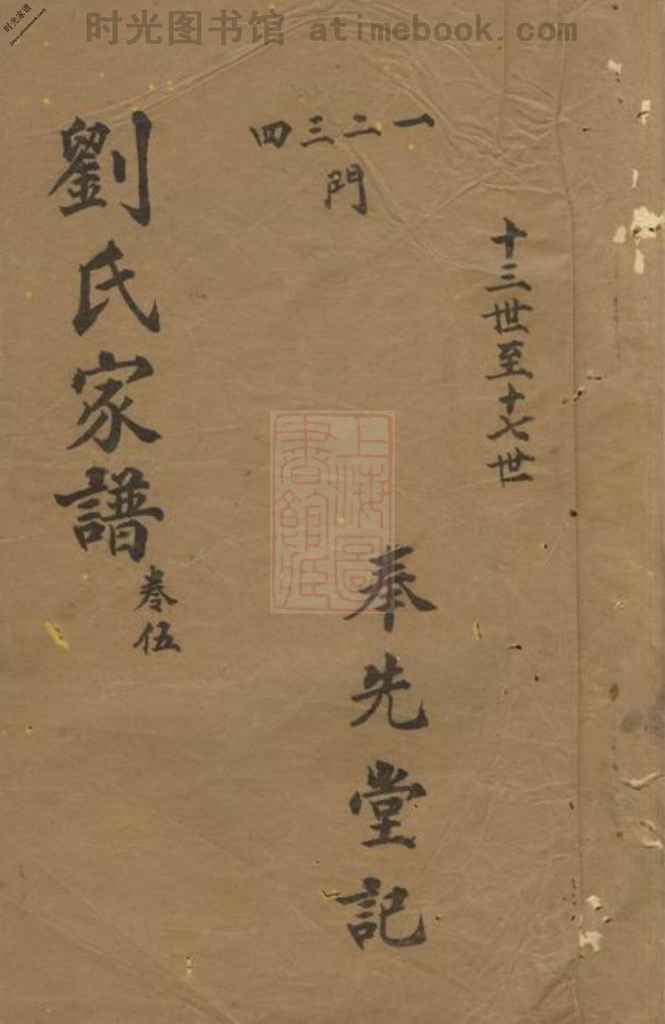 时光图书馆 atimebook.com
时光家谱
十三世至十七世
一二三四
門
奉先堂記
劉氏家譜
卷伍